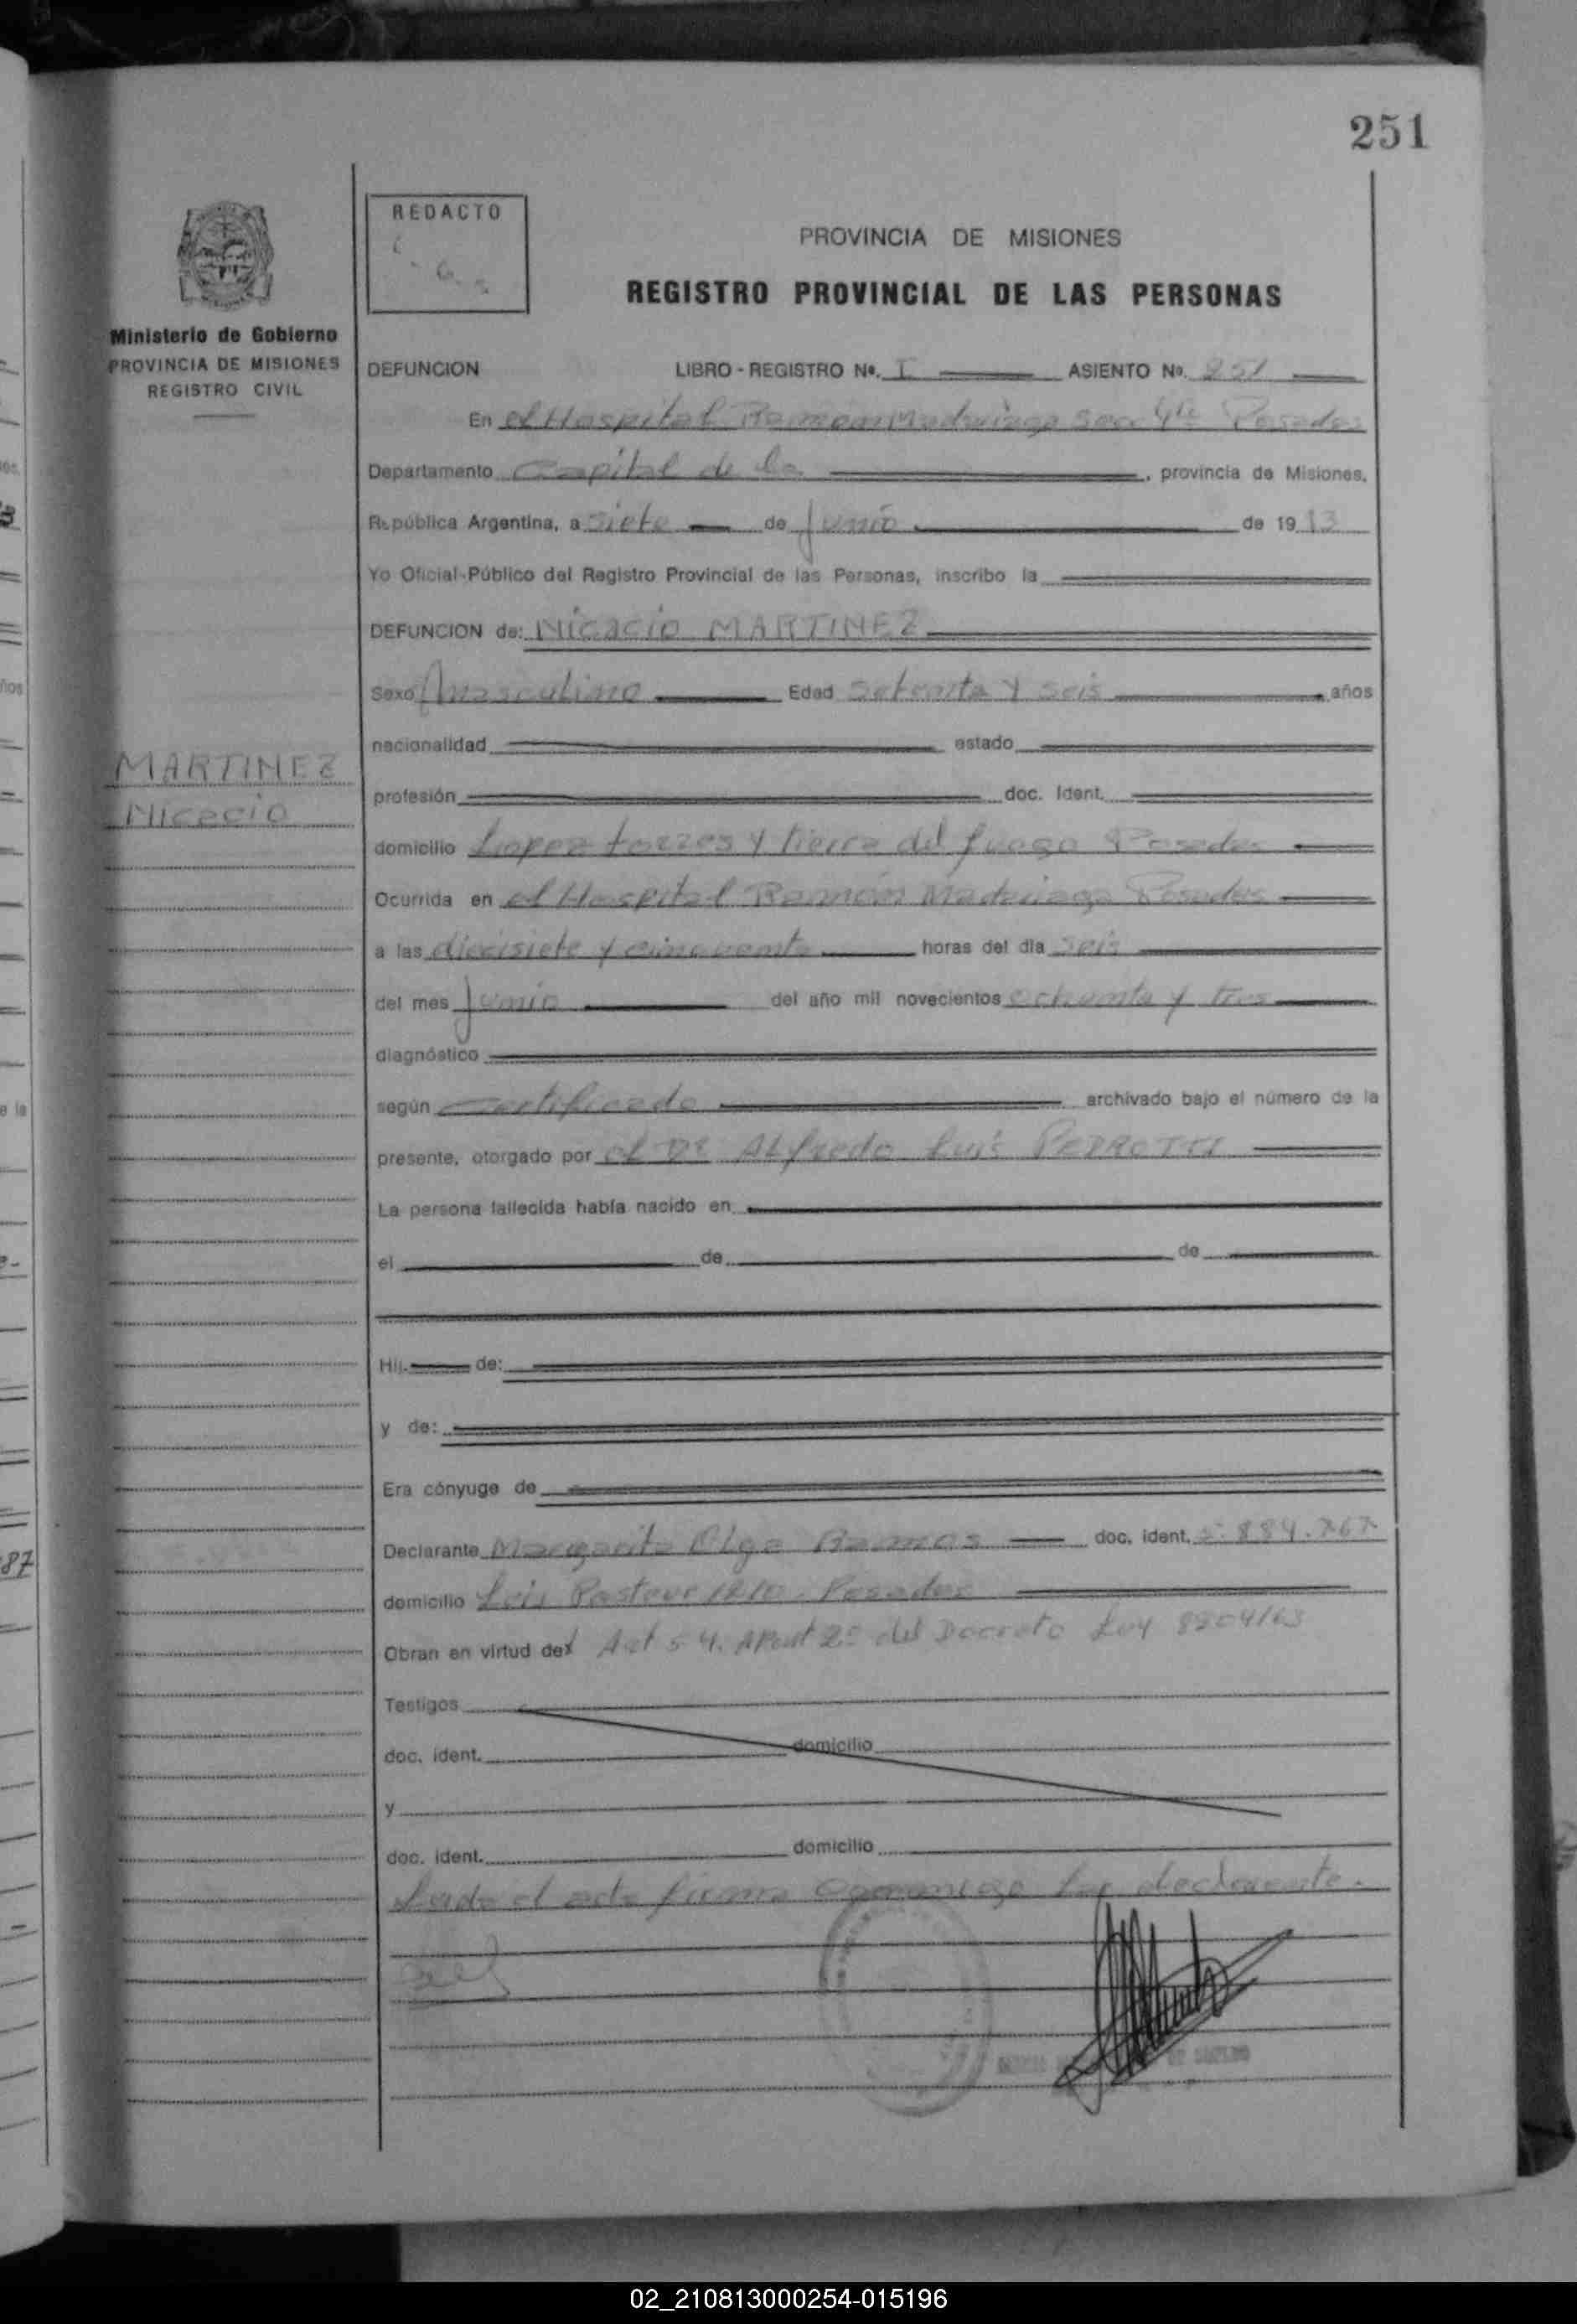 251
REDACTO
PROVINCIA DE MISIONES
REGISTRO PROVINCIAL DE LAS PERSONAS
Ministerio de Gobierno
PROVINCIA DE MISIONES
REGISTRO CIVIL
DEFUNCION LIBRO - REGISTRO Nº. I ASIENTO Nº. 251
En el Hospital Ramon Madariaga Secc 4ta Posadas
Departamento Capital de la , provincia de Misiones,
República Argentina, a siete de Junio de 19
Yo Oficial Público del Registro Provincial de las Personas, inscribo la
DEFUNCION de: Nicacio MARTINEZ
Sexo Masculino Edad Setenta y seis años
nacionalidad estado
MARTINEZ
Nicacio
profesión doc. Ident.
domicilio Lopez torres y tierra del fuego Posadas
Ocurrida en el Hospital Ramón Madariaga Posadas
a las diecisiete y cincuenta horas del día seis
del mes Junio del año mil novecientos ochenta y tres
diagnóstico
según certificado archivado bajo el número de la
presente, otorgado por el Dr Alfredo Luis PERROTTI
La persona fallecida había nacido en
el de de
Hij de:
y de:
Era cónyuge de
Declarante Margarita Olga Ramos doc. ident. 5.884.767
domicilio Luis Pasteur 1210 - Posadas
Obran en virtud del Art 54. Apart 2º del Decreto Ley 8204/63
Testigos
doc. ident. domicilio
y
doc. ident. domicilio
Leida el acta firma conmigo la declarante.
02_210813000254-015196